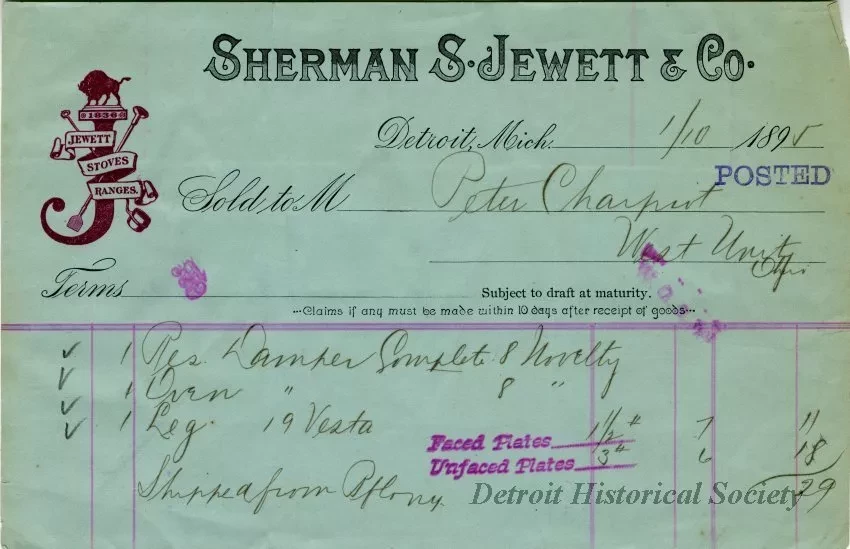 SHERMAN S. JEWETT & CO.
1836
JEWETT
STOVES
RANGES.
Detroit, Mich. 1/10 1895
POSTED
Sold to M Peter Charpiot
West Unity
Ohio
Terms
Subject to draft at maturity.
Claims if any must be made within 10 days after receipt of goods
1 Res. Damper Complete 8 Novelty
1 Oven " 8 "
1 Leg. 19 Vesta
Faced Plates 1½ # 7 11
Unfaced Plates 3 # 6 18
29
Shipped from
Detroit Historical Society